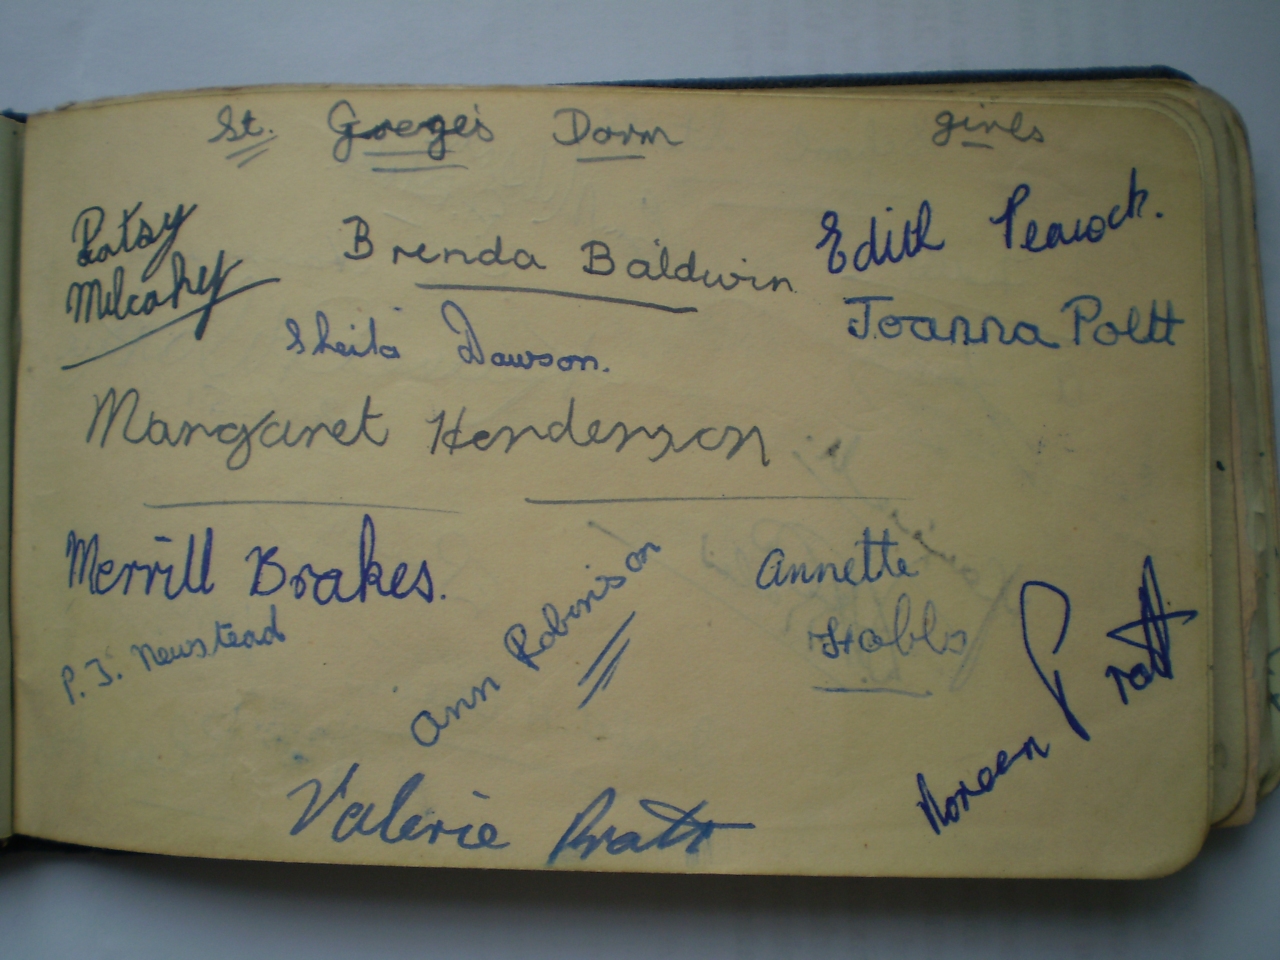 St. Goerge's Dorm girls
Patsy
Milcahy
Brenda Baldwin
Edith Peacock.
Sheila Dawson.
Joanna Poltt
Margaret Henderson
Merrill Brakes.
Ann Robinison
Annette
Hobbs
P. J. Newstead
Noreen Pratt
Valerie Pratt